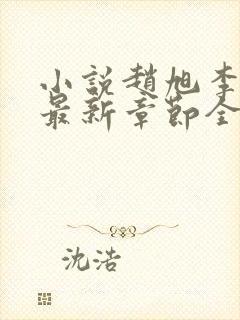 小説趙旭李
最新章節全
沈浩